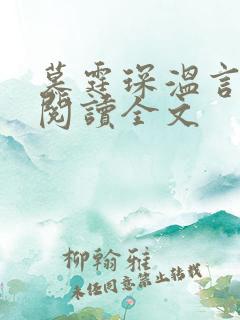 墓霆琛溫言
閱讀全文
柳翰雅
未經同意禁止轉載